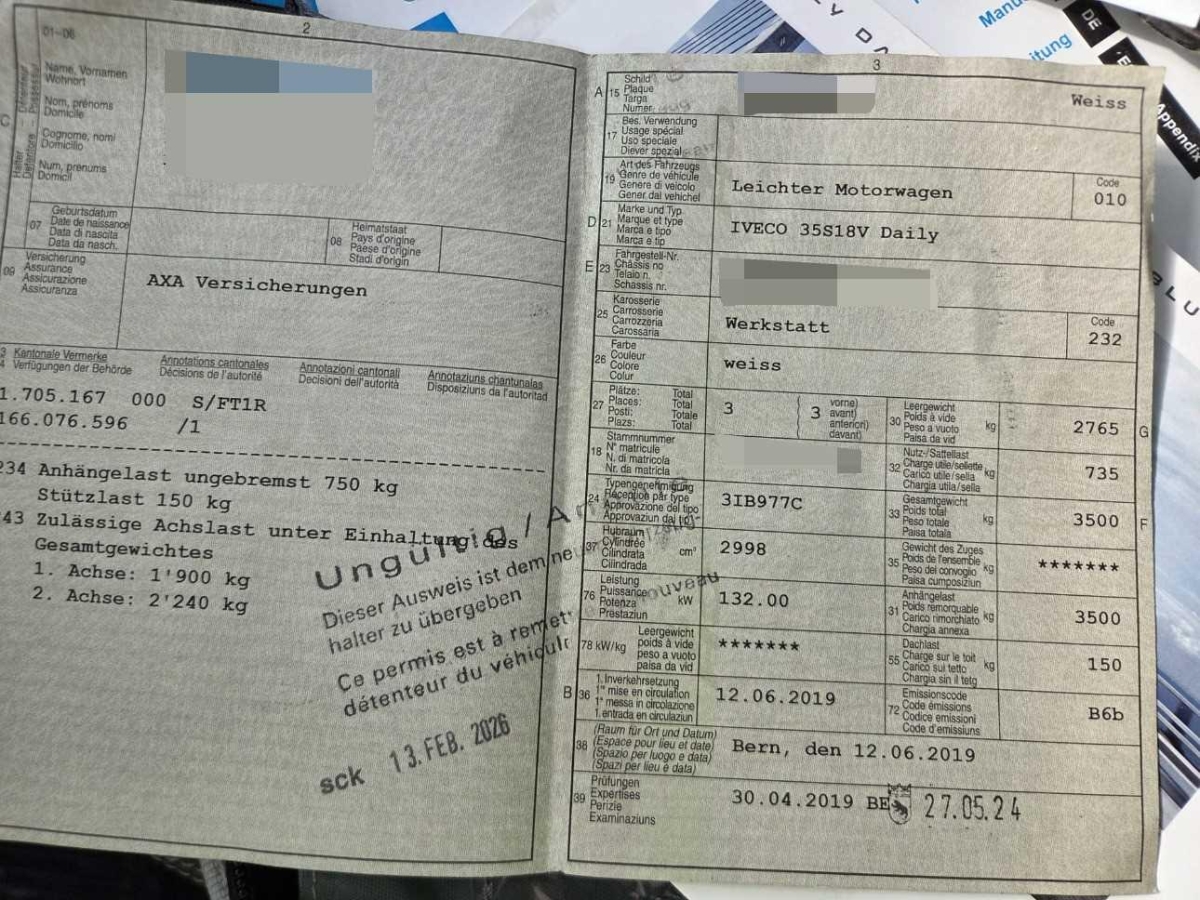 2
01-06
C
Halter
Détenteur
Detentore
Possessur
Name, Vornamen
Wohnort
Nom, prénoms
Domicile
Cognome, nomi
Domicilio
Num, prenums
Domicil
07
Geburtsdatum
Date de naissance
Data di nascita
Data da nasch.
08
Heimatstaat
Pays d'origine
Paese d'origine
Stadi d'origin
09
Versicherung
Assurance
Assicurazione
Assicuranza
AXA Versicherungen
3 Kantonale Vermerke
4 Verfügungen der Behörde
Annotations cantonales
Décisions de l'autorité
Annotazioni cantonali
Decisioni dell'autorità
Annotaziuns chantunalas
Disposiziuns da l'autoritad
1.705.167 000 S/FT1R
166.076.596 /1
234 Anhängelast ungebremst 750 kg
Stützlast 150 kg
43 Zulässige Achslast unter Einhaltung des
Gesamtgewichtes
1. Achse: 1'900 kg
2. Achse: 2'240 kg
Ungültig / An
Dieser Ausweis ist dem neu
halter zu übergeben
Ce permis est à remett
nouveau
détenteur du véhicule
sck 13. FEB. 2026
3
A 15
Schild
Plaque
Targa
Numer
Weiss
17
Bes. Verwendung
Usage spécial
Uso speciale
Diever spezial
19
Art des Fahrzeugs
Genre de véhicule
Genere di veicolo
Gener dal vehichel
Leichter Motorwagen
Code
010
D 21
Marke und Typ
Marque et type
Marca e tipo
Marca e tip
IVECO 35S18V Daily
E 23
Fahrgestell-Nr.
Châssis no
Telaio n.
Schassis nr.
25
Karosserie
Carrosserie
Carrozzeria
Carossaria
Werkstatt
Code
232
26
Farbe
Couleur
Colore
Colur
weiss
27
Plätze: Total
Places: Total
Posti: Totale
Plazs: Total
3
( 3
vorne)
avant)
anteriori)
davant)
30
Leergewicht
Poids à vide
Peso a vuoto
Paisa da vid
kg
2765
G
18
Stammnummer
N° matricule
N. di matricola
Nr. da matricla
32
Nutz-/Sattellast
Charge utile/sellette
Carico utile/sella
Chargia utila/sella
kg
735
24
Typengenehmigung
Réception par type
Approvazione del tipo
Approvaziun dal tip
3IB977C
33
Gesamtgewicht
Poids total
Peso totale
Paisa totala
kg
3500
F
37
Hubraum
Cylindrée
Cilindrata
Cilindrada
cm³
2998
35
Gewicht des Zuges
Poids de l'ensemble
Peso del convoglio
Paisa cumposiziun
kg
*******
76
Leistung
Puissance
Potenza
Prestaziun
kW
132.00
31
Anhängelast
Poids remorquable
Carico rimorchiato
Chargia annexa
kg
3500
78 kW/kg
Leergewicht
poids à vide
peso a vuoto
paisa da vid
*******
55
Dachlast
Charge sur le toit
Carico sul tetto
Chargia sin il tetg
kg
150
B 36
1. Inverkehrsetzung
1re mise en circulation
1a messa in circolazione
1. entrada en circulaziun
12.06.2019
72
Emissionscode
Code émissions
Codice emissioni
Code d'emissiuns
B6b
38
(Raum für Ort und Datum)
(Espace pour lieu et date)
(Spazio per luogo e data)
(Spazi per lieu e data)
Bern, den 12.06.2019
39
Prüfungen
Expertises
Perizie
Examinaziuns
30.04.2019 BE
27.05.24
Y DA
Manu
itung
DE
Appendi
BLU